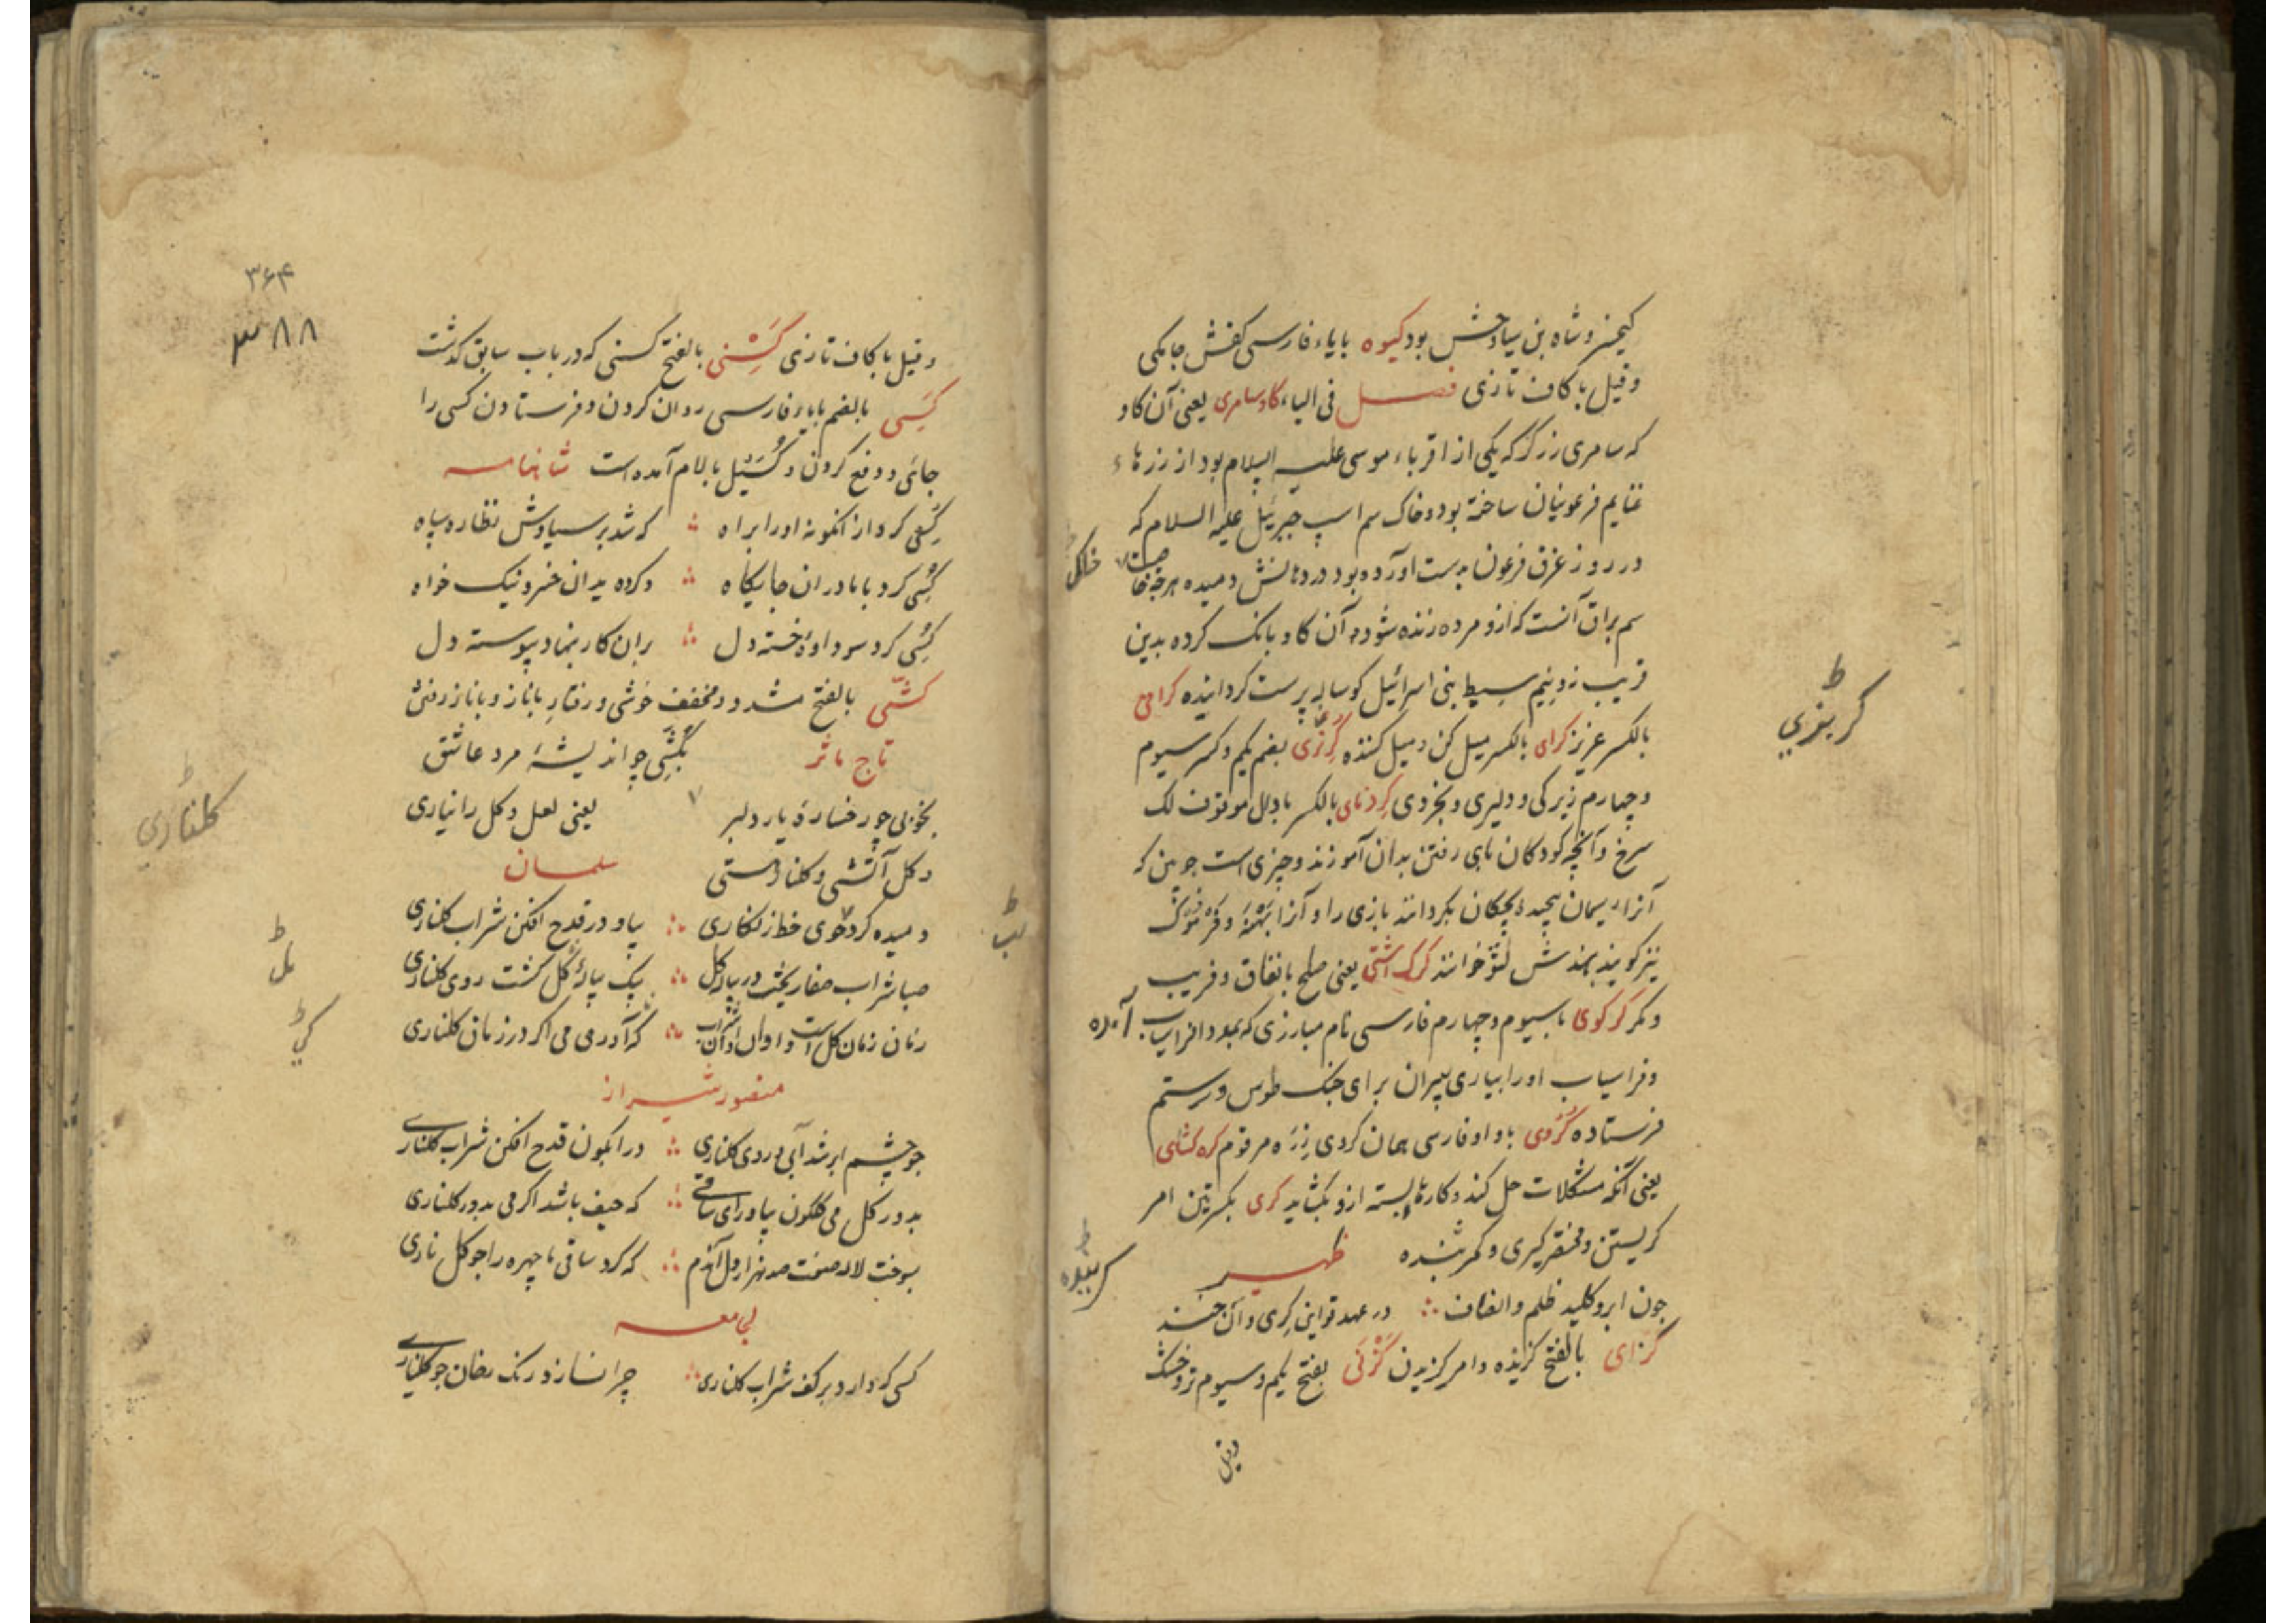 کیخسرو شاه بن سیاوخش بود کیوه بایاء فارسی کفش جامکی
وقیل با کاف تازی فصل فی الیاء گاو سامری یعنی آن گاو
که سامری زرگر که یکی از اقرباء موسی علیه السلام بود از زرهاء
غنایم فرعونیان ساخته بود و خاک سم اسپ جبرئیل علیه السلام که
در روز غرق فرعون بدست آورده بود در دهانش دمیده هرچه خاک
سم براق آنست که ازو مرده زنده شود آن گاو بانک کرده بدین
فریب دو نیم سبط بنی اسرائیل کوساله پرست کردانیده کرامی
بالکسر عزیز کرای بالکسر میل کن و میل کننده کربزی بضم یکم وکسر سیوم
وچهارم زیرکی و دلیری و بخردی کردنای بالکسر بادال موقوف لک
سرخ وآنچه کودکان بای رفتن بدان آموزند وچیزی است جوبین که
آنرا ریسمان پیچیده بچکان بکردانند بازی را و آنرا
نیز کویند بهندش لتو خوانند کرک آشتی یعنی صلح بانفاق و فریب
ومکر کرکوی باسیوم وچهارم فارسی نام مبارزی که بمدد افراسیاب آمده
وفراسیاب اورا بیاری پیران برای جنک طوس و رستم
فرستاده کروی باواو فارسی همان کروی زره مرقوم کره کشای
یعنی آنکه مشکلات حل کند و کارهاء بسته ازو بکشاید کری بکسرتین امر
کریستن ومختصر کیری و کمر شده ظهیر
چون ابر و کلید ظلم و انصاف در عهد تو این کری و آن خند
کزای بالفتح کزیده و امر کزیدن کزنی بفتح یکم و سیوم تر و خشک
وقیل
کربزی
۳۶۴
۳۸۸
وقیل با کاف تازی کَشْنی بالفتح کسنی که در باب سابق کذشت
کسی بالضم بایاء فارسی روان کردن و فرستادن کسی را
جائی و دفع کردن و کسیل بالام آمده است شاهنامه
کسی کرد از انکونه اورا براه که شد بر سیاوش نظاره سپاه
کسی کرد با مادران جایکاه وکرده بدان خسرو نیک خواه
کسی کرد سوداوه خسته دل بران کار بنهاد پیوسته دل
کشّی بالفتح مشدد و مخفف خوشی و رفتار باناز و باناز رفتن
تاج ماثر بکشی چو اندیشهٔ مرد عاشق
بخوبی چو رخسارهٔ یار دلبر یعنی لعل وکل رانیاری
وکل آتشی و کلنار دستی سلمان
دمیده کرد خوی خط زنکاری بیاو در قدح افکن شراب کلناری
صبا شراب صفا ریخت در پیاله کل بیک پیاله کل کشت روی کلناری
زمان زمان کل است و اوان که آورمی می اکر در زمان کلناری
منصور شیراز
چو چشم ابر شد آبی و روی کلناری در آبکون قدح افکن شراب کلناری
بدور کل می کلکون بیاور ای ساقی که حیف باشد اکر می بدور کلناری
بسوخت لاله صفت صد هزار دل آندم که کرد ساقی ما چهره را چو کل ناری
لجامعه
کسی که دارد بر کف شراب کلناری چرا نسازد رنک رخان چو کلناری
کلناری